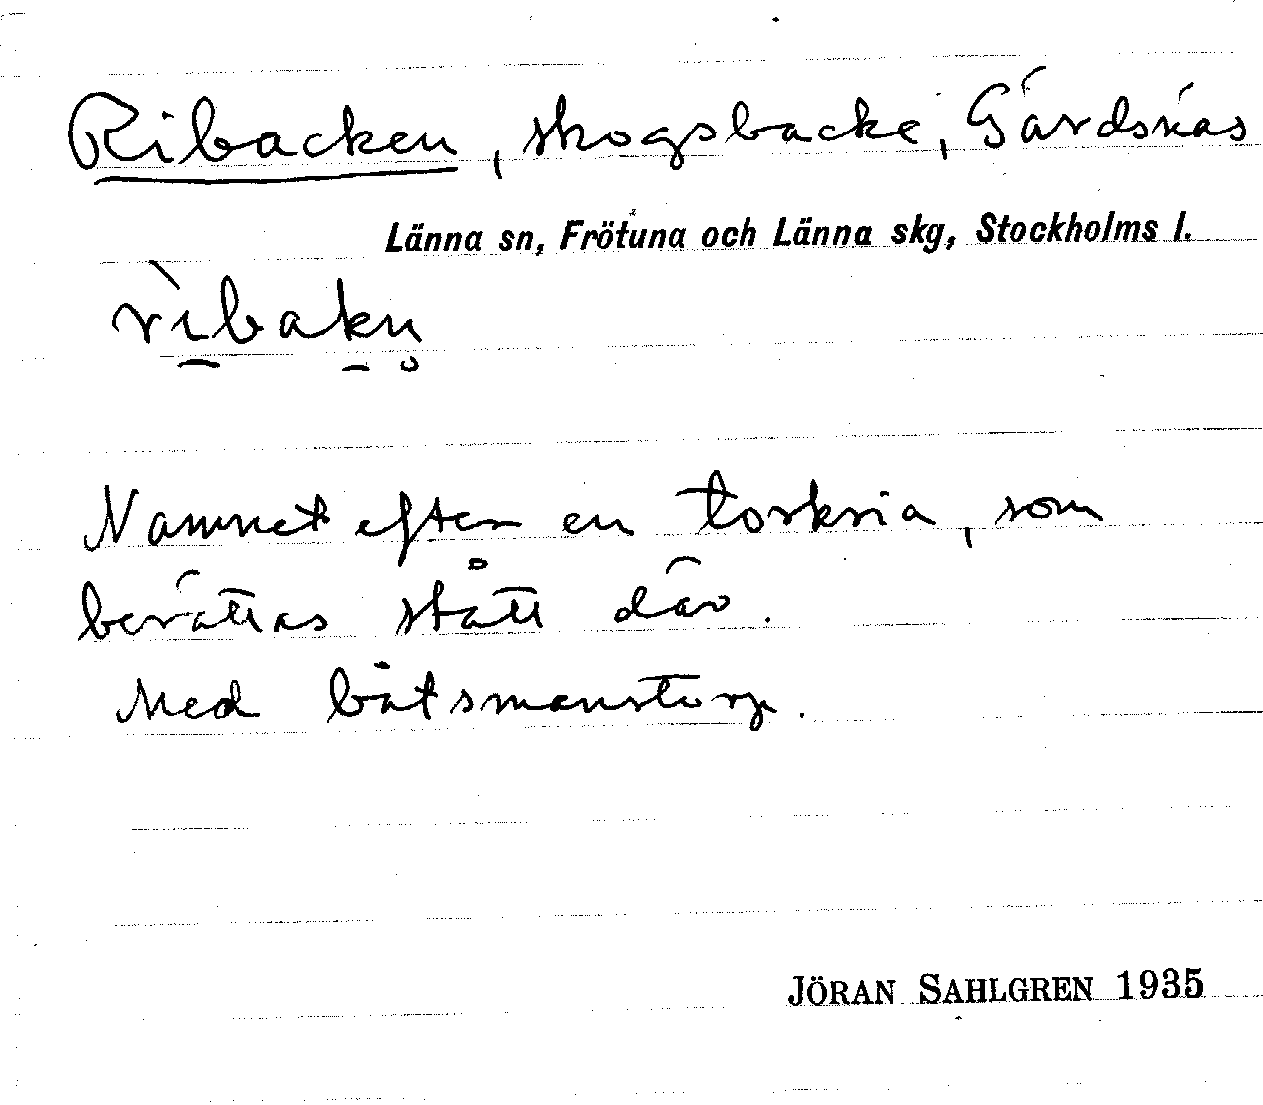 Ribacken, skogsbacke, Gärdsnäs
Länna sn, Frötuna och Länna skg, Stockholms l.
rìbakn̥
Namnet efter en torkria, som
berättas stått där.
Med båtsmanstorp.
JÖRAN SAHLGREN 1935